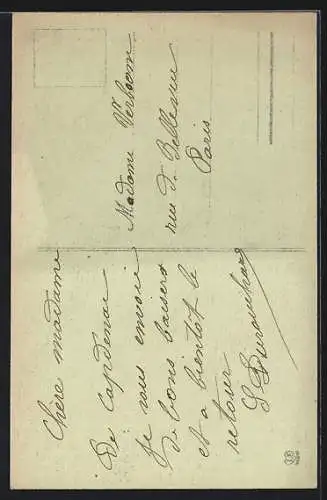 Chère madame
De Capdenac
Je vous envoie
de bons baisers
et a bientôt le
retour
Madame Verbome
rue de Bellevue
Paris